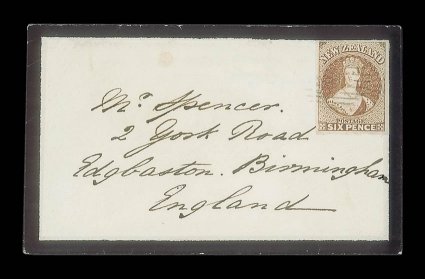 NEW ZEALAND
POSTAGE
SIX PENCE
Mr. Spencer.
2 York Road
Edgbaston. Birmingham
England